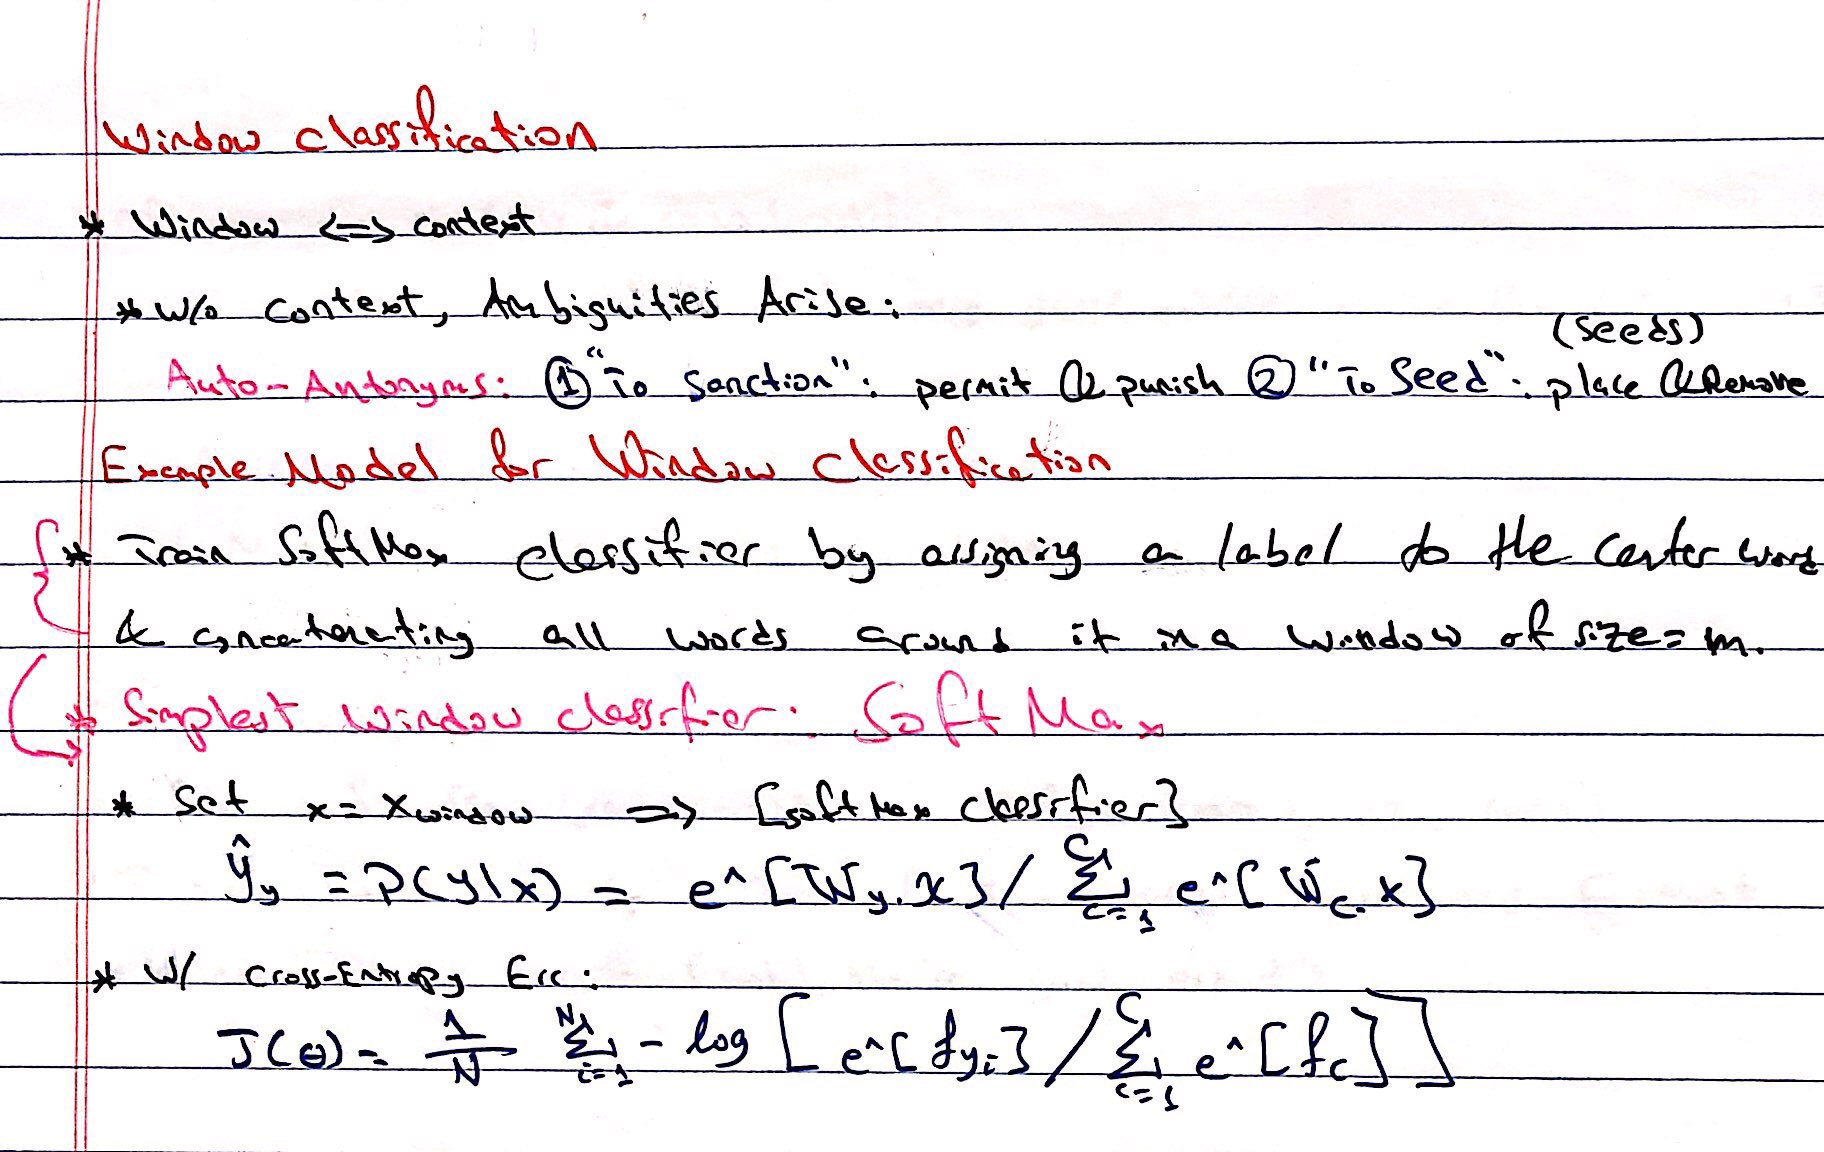 Window Classification
* Window <=> context
* w/o context, Ambiguities Arise:
(seeds)
Auto-Antonyms: ① "To Sanction": permit & punish ② "To Seed": place & Remove
Example Model for Window Classification
* Train SoftMax classifier by assigning a label to the center word
& concatenating all words around it in a window of size = m.
* Simplest window classifier: SoftMax
* Set x = x_window => [softMax classifier]
ŷ_y = P(y|x) = e^[W_y.x] / Σ_{c=1}^{C} e^[W_c.x]
* w/ Cross-Entropy Err:
J(θ) = 1/N Σ_{i=1}^{N} - log [e^[f_{y_i}] / Σ_{c=1}^{C} e^[f_c]]